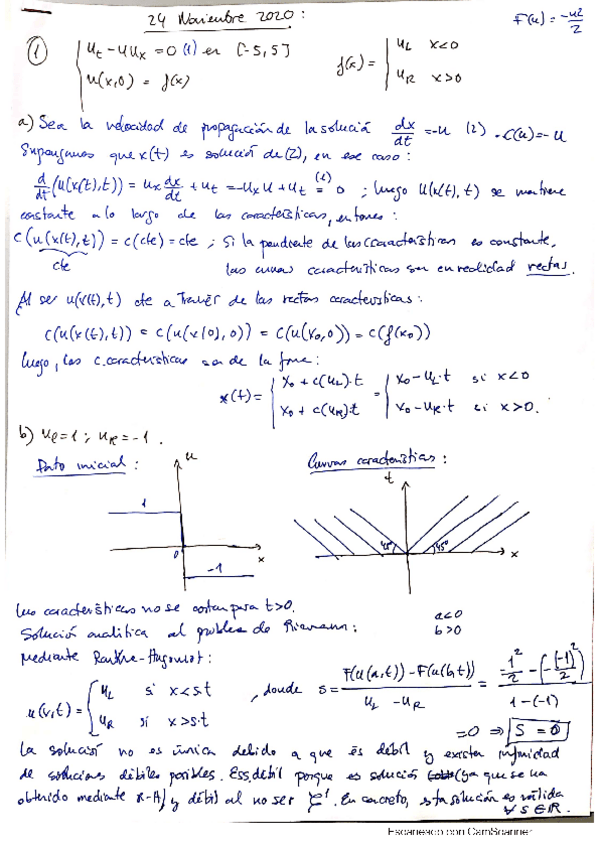 24 Noviembre 2020:
F(u) = -u²/2
① { u_t - u u_x = 0 (1) en [-5,5]
u(x,0) = f(x)
f(x) = { u_L x<0
u_R x>0
a) Sea la velocidad de propagación de la solución dx/dt = -u (2) · C(u) = -u
Supongamos que x(t) es solución de (2), en ese caso:
d/dt (u(x(t),t)) = u_x dx/dt + u_t = -u_x u + u_t (1)= 0 ; luego u(x(t),t) se mantiene
constante a lo largo de las características, entonces:
C(u(x(t),t)) = c(cte) = cte ; Si la pendiente de las características es constante,
cte
las curvas características son en realidad rectas.
Al ser u(x(t),t) cte a través de las rectas características:
C(u(x(t),t)) = C(u(x(0),0)) = C(u(x_0,0)) = C(f(x_0))
luego, las c.características son de la forma:
x(t) = { x_0 + c(u_L)·t = { x_0 - u_L·t si x<0
x_0 + c(u_R)·t x_0 - u_R·t si x>0.
b) u_L=1 ; u_R=-1.
Dato inicial:
Curvas características:
u
1
0
x
-1
t
45°
45°
x
Las características no se cortan para t>0.
a<0
Solución analítica al problema de Riemann:
b>0
Mediante Rankine-Hugoniot:
u(x,t) = { u_L si x<s·t
u_R si x>s·t
, donde s = F(u(a,t)) - F(u(b,t)) / u_L - u_R = -1²/2 - (-(-1)²/2) / 1-(-1)
=0 ⇒ S = 0
La solución no es única debido a que es débil y existen infinidad
de soluciones débiles posibles. Es débil porque es solución (ya que se ha
obtenido mediante R-H) y débil al no ser C¹. En concreto, esta solución es válida
∀ s ∈ ℝ.
Escaneado con CamScanner